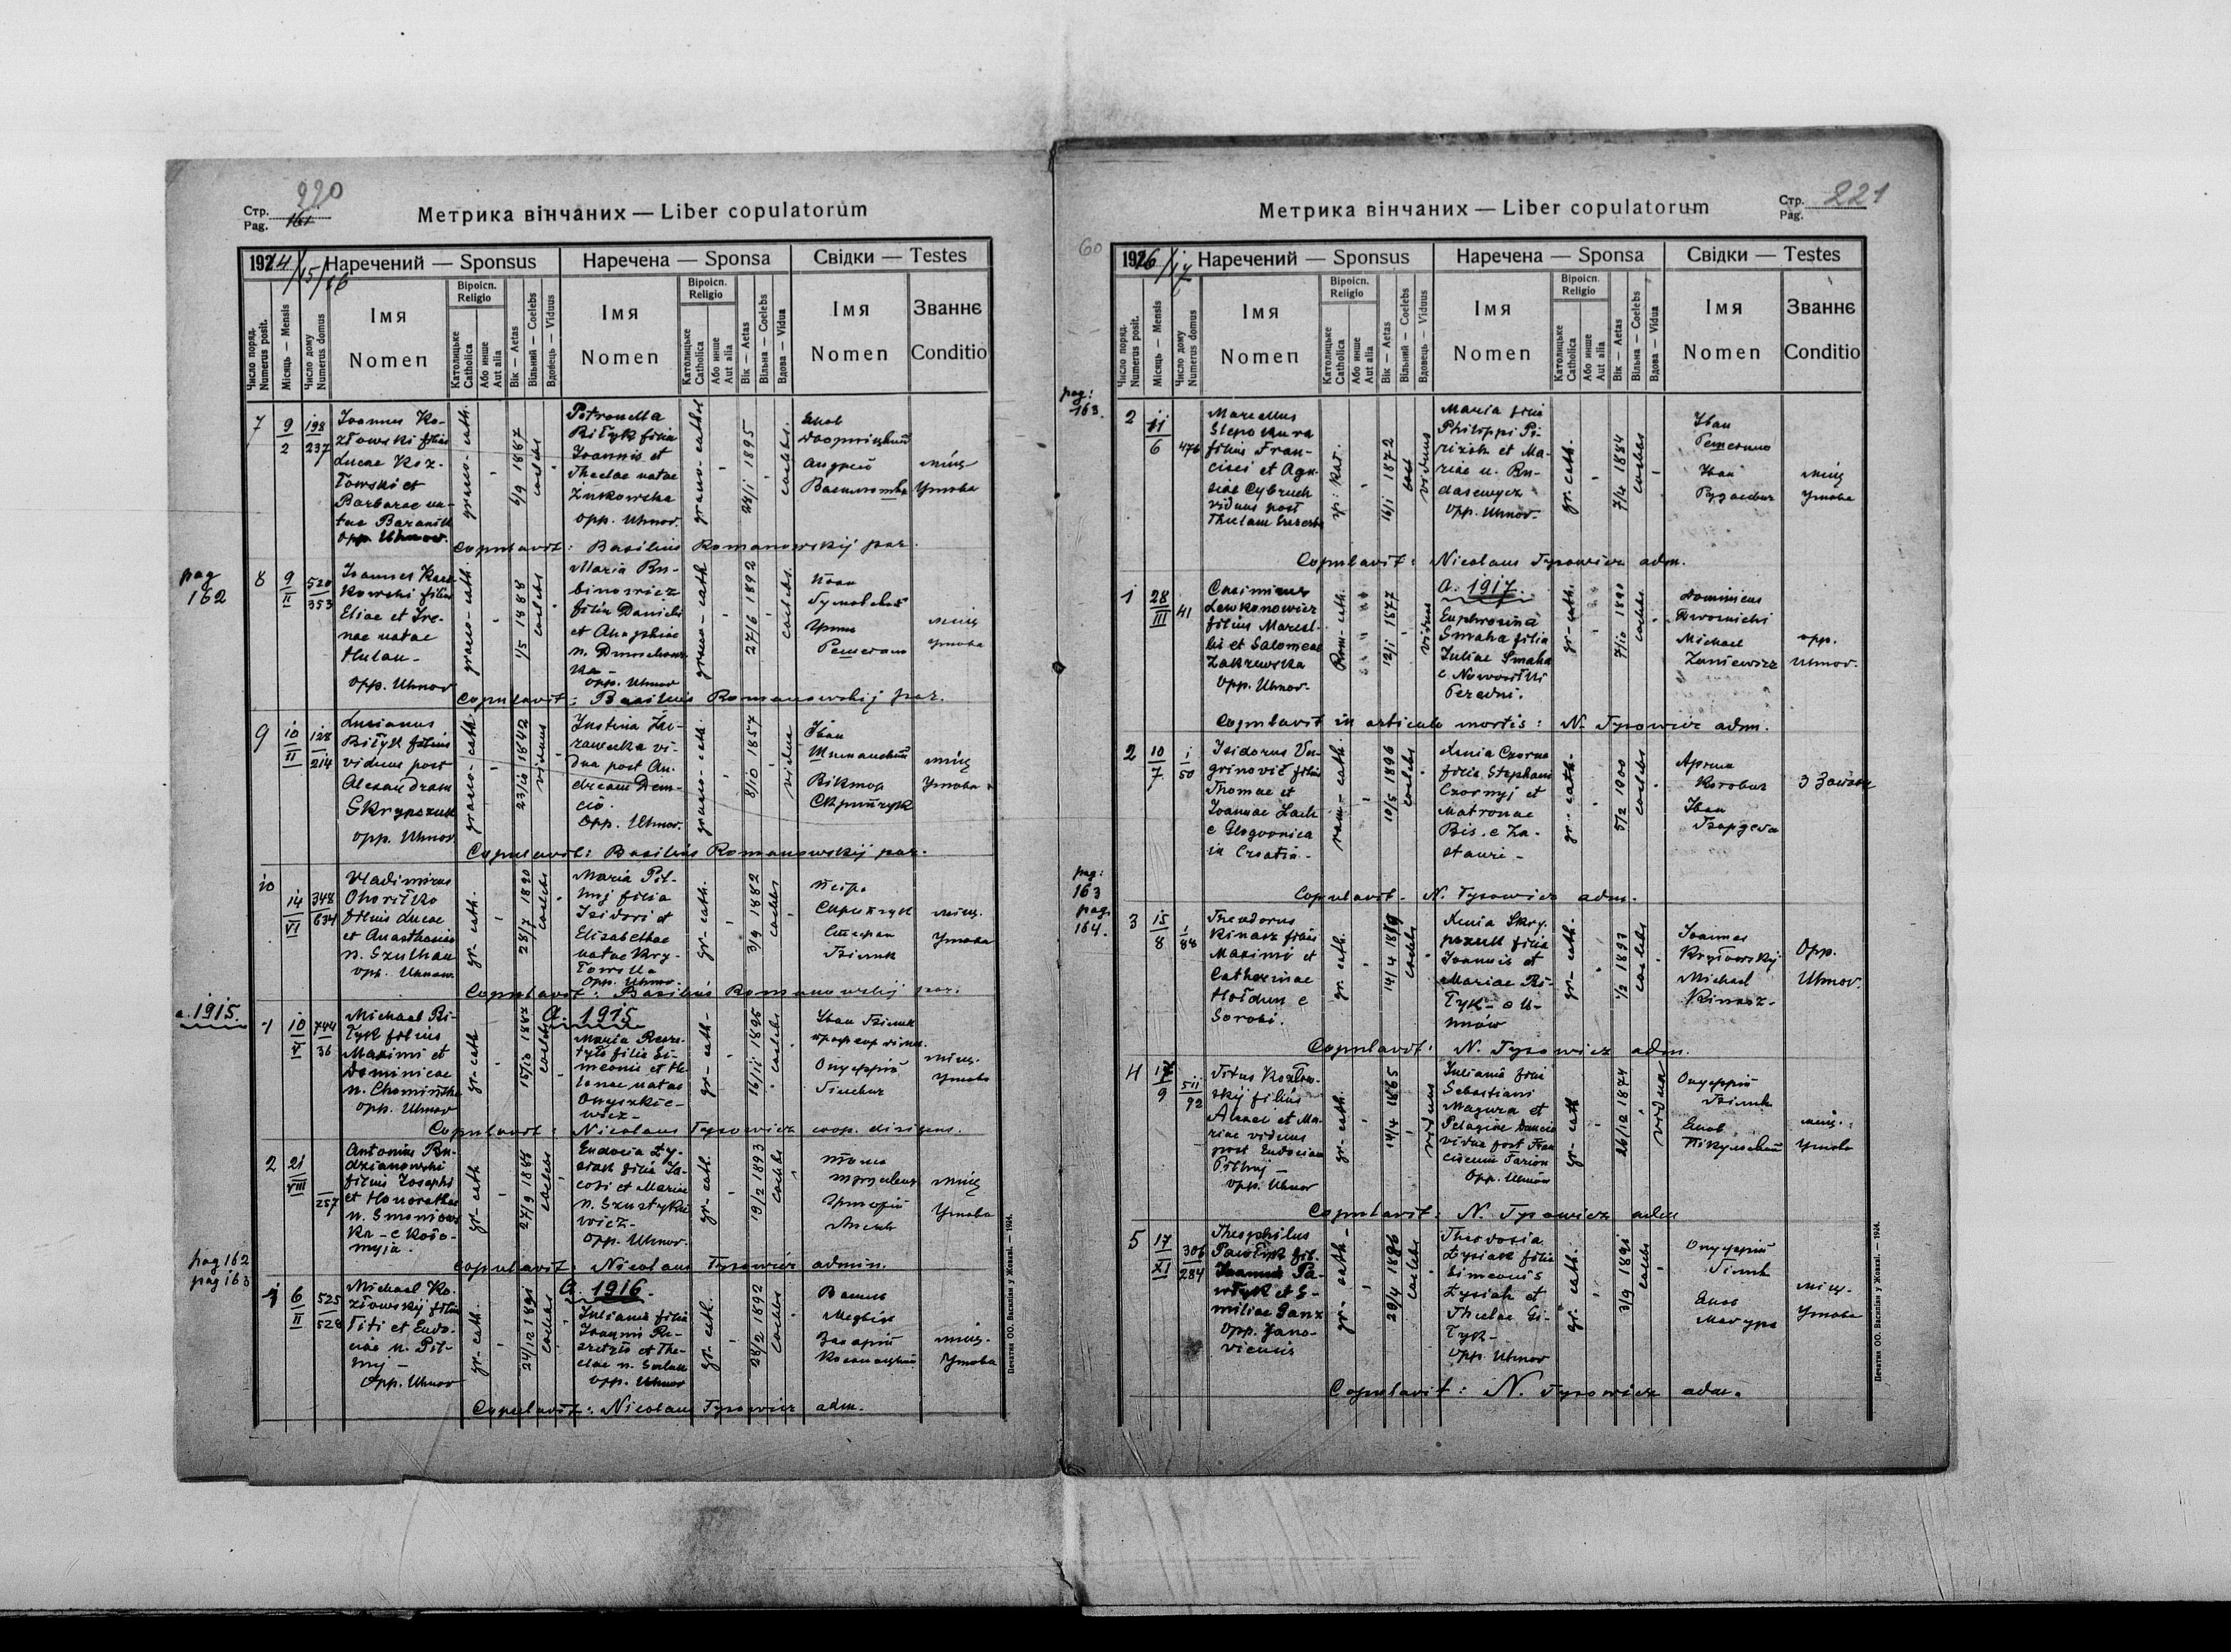 220
Стр.
Pag. 161
Метрика вінчаних — Liber copulatorum
1914/15/16
Наречений — Sponsus
Наречена — Sponsa
Свідки — Testes
Число поряд.
Numerus posit.
Місяць — Mensis
Число дому
Numerus domus
Імя
Nomen
Віроісп.
Religio
Католицьке
Catholica
Або инше
Aut alia
Вік — Aetas
Вільний — Coelebs
Вдовець — Viduus
Імя
Nomen
Віроісп.
Religio
Католицьке
Catholica
Або инше
Aut alia
Вік — Aetas
Вільна — Coelebs
Вдова — Vidua
Імя
Nomen
Званнє
Conditio
7
9
2
198
237
Joannes Ko-
złowski filius
Lucae Koz-
łowski et
Barbarae na-
tae
opp. Uhnow.
graeco-cath.
6/9 1887
coelebs
Petronella
Biłyk filia
Joannis et
Theclae natae
Żukowska
opp. Uhnov.
graeco-cathol
1895
coelebs.
Яков
Андрей
міщ
Угнова
Copulavit: Basilius Romanowskij par.
pag
162
8
9
II
520
353
Joannes
filius
Eliae et Ire-
nae natae
Hulan-
opp. Uhnov
graeco-cath.
1/5 1888
coelebs
Maria Ru-
binowicz
filia Danielis
et
opp. Uhnov
graeco-cath
27/6 1892
coelebs.
Решетило
міщ
Угнова
Copulavit: Basilius Romanowskij par.
9
10
II
128
214
Lucianus
Biłyk filius
viduus post
Alexandram
Skrypczuk
opp. Uhnov
graeco-cath.
23/10 1842
viduus
Justina
vi-
dua post An-
dream Dem-
ció.
Opp. Uhnov.
graeco-cath.
8/10 1857
vidua
Іван
Віктор
Скрипчук
міщ
Угнова
Copulavit: Basilius Romanowskij par.
10
14
VI
348
634
Vladimirus
Ohoritko
filius Lucae
et Anasthasiae
n.
opp. Uhnow.
gr-cath.
28/7 1890
coelebs
Maria Pil-
nyj filia
Isidori et
Elisabethae
natae Kry-
opp. Uhnov.
gr-cath.
3/9 1882
coelebs
Петро
Скрипчук
Стефан
Білик
міщ.
Угнова
Copulavit: Basilius Romanowskij par.
a. 1915.
A. 1915
1
10
V
744
36
Michael Bi-
łyk filius
Maximi et
Dominicae
n.
opp. Uhnov
gr-cath
coelebs
Maria
filia Si-
meonis et He-
lenae natae
Onyszkie-
wicz-
gr-cath-
16/11 1895
coelebs
Іван Білик
Онуфрій
міщ.
Угнова
Copulavit: Nicolaus Tysowicz coop. dirigens.
2
21
VIII
257
Antonius Ru-
dzianowski
filius Josephi
et Honorathae
n.
gr-cath
27/9 1885
coelebs
Eudocia Ły-
siak filia Ja-
cobi et Mariae
n.
opp. Uhnov.
gr-cath.
19/2 1893
coelebs
міщ
Угнова
Copulavit: Nicolaus Tysowicz admin.
pag 162
pag 163
A. 1916.
1
6
II
525
528
Michael Ko-
złowskij filius
Titi et Eudo-
ciae n. Pil-
nyj -
opp. Uhnov
gr-cath.
24/12 1891
coelebs
Juliana filia
Joannis Re-
et The-
clae n.
opp. Uhnov
gr-cath.
28/2 1892
coelebs
Василь
Медвідь
міщ.
Угнова
Copulavit: Nicolaus Tysowicz adm.
Печатня ОО. Василіян у Жовкві. — 1924.
Стр.
Pag. 221
Метрика вінчаних — Liber copulatorum
60
1916/17
Наречений — Sponsus
Наречена — Sponsa
Свідки — Testes
Число поряд.
Numerus posit.
Місяць — Mensis
Число дому
Numerus domus
Імя
Nomen
Віроісп.
Religio
Католицьке
Catholica
Або инше
Aut alia
Вік — Aetas
Вільний — Coelebs
Вдовець — Viduus
Імя
Nomen
Віроісп.
Religio
Католицьке
Catholica
Або инше
Aut alia
Вік — Aetas
Вільна — Coelebs
Вдова — Vidua
Імя
Nomen
Званнє
Conditio
pag:
163.
2
11
6
476
Marcellus
Slepokura
filius Fran-
cisci et Agne-
siae Cybruch
viduus post
Theclam
гр: кат.
16/1 1872
viduus
Maria filia
Philippi Pi-
et Ma-
riae n. Ru-
dasewycz
opp. Uhnov-
gr. cath.
7/4 1884
coelebs
Іван
Решетило
Іван
Рудасевич
міщ
Угнова
Copulavit: Nicolaus Tysowicz adm.
A. 1917.
1
28
III
41
Casimirus
Lewkonowicz
filius Marcel-
li et Salomeae
Zakrzewska
opp. Uhnov-
Rom-cath.
12/1 1877
viduus
Euphrosina
Smaha filia
Juliae Smaha
e Nowosiółki
Peredni.
gr-cath.
coelebs
Dominicus
Dwornicki
Michael
Zaniewicz
opp.
Uhnov.
Copulavit in articulo mortis: N. Tysowicz adm.
2
10
7
1
50
Isidorus Vu-
grinovič filius
Thomae et
Joannae Lach
e Glogovnica
in Croatia-
rom-cath.
10/5 1896
coelebs
Xenia Czorna
filia Stephani
Czornyj et
Matronae
Bis. e Za-
stauri-
gr.-cath.
5/2 1900
coelebs
Korobus
Іван
Copulavit- N. Tysowicz adm.
pag:
163
pag.
164.
3
15
8
1
88
Theodorus
Kinasz filius
Maximi et
Catharinae
Hołdun e
gr cath.
14/4 1889
coelebs
Xenia Skry-
pczuk filia
Joannis et
Mariae Bi-
łyk- e U-
hnów
gr-cath.
1/2 1893
coelebs
Joannes
Michael
Kinasz-
Opp.
Uhnov.
Copulavit: N. Tysowicz adm.
4
9
511
92
Titus Kozłow-
skij filius
et Ma-
riae viduus
post Eudociam
Pilnyj-
opp. Uhnov
gr-cath.
14/4 1865
viduus
Juliana filia
Sebastiani
Magura et
Pelagiae
vidua post Fran-
ciscum
Opp. Uhnów
gr-cath
26/12 1874
vidua
Онуфрій
Білик
Яков
Пікульский
міщ.
Угнова
Copulavit: N. Tysowicz adm
5
17
XI
306
284
Theophilus
Pawłyk fil.
Joannis Pa-
włyk et E-
miliae Ganz
opp. Jano-
viensis
gr-cath-
29/4 1886
coelebs
Theodosia
Łysiak filia
Simeonis
Łysiak et
Theclae Bi-
łyk-
opp. Uhnov
gr. cath.
3/9 1891
coelebs
Онуфрій
Білик
Яков
Магура
міщ.
Угнова
Copulavit: N. Tysowicz adm.
Печатня ОО. Василіян у Жовкві. — 1924.